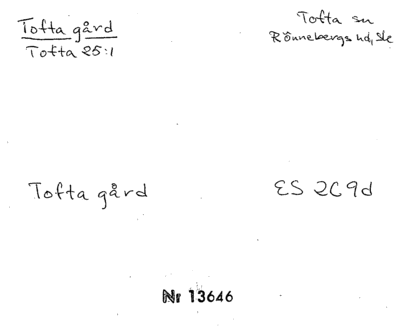 Tofta gård
Tofta 25:1
Tofta sn
Rönnebergs hd, Skå
Tofta gård
ES 2C9d
Nr 13646